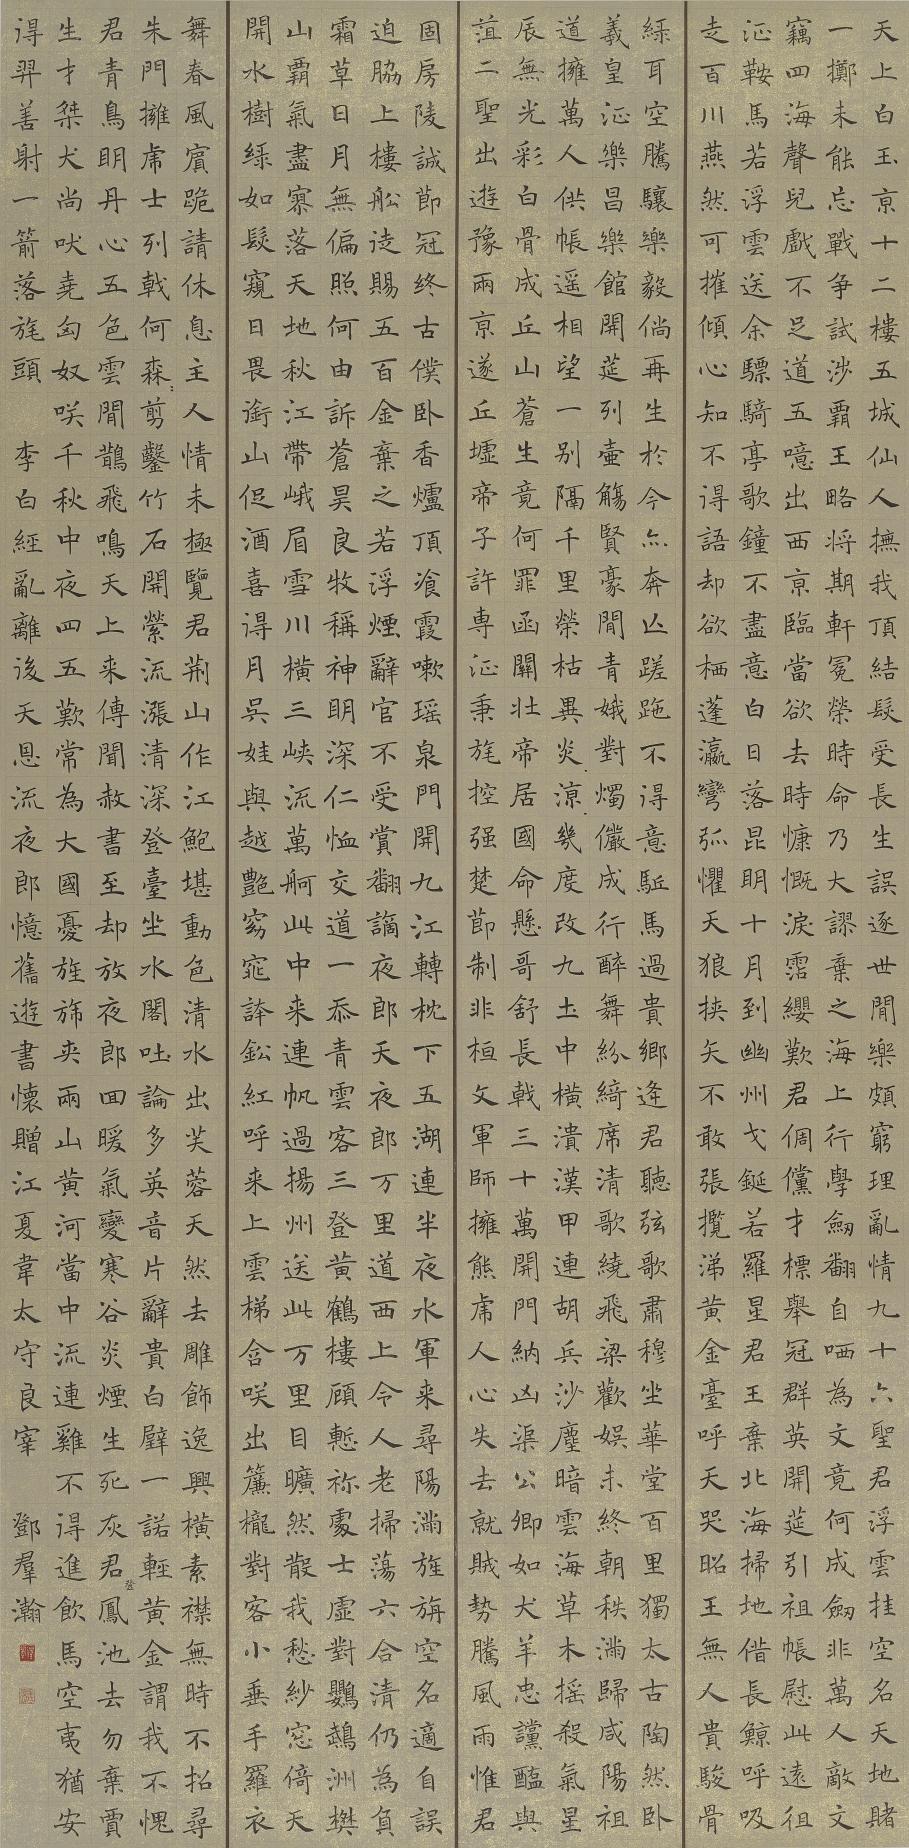 天上白玉京十二樓五城仙人撫我頂結髮受長生誤逐世閒樂頗窮理亂情九十六聖君浮雲挂空名天地賭
一擲未能忘戰爭試涉霸王略將期軒冕榮時命乃大謬棄之海上行學劒翻自哂為文竟何成劒非萬人敵文
竊四海聲兒戲不足道五噫出西京臨當欲去時慷慨淚霑纓歎君倜儻才標舉冠群英開筵引祖帳慰此遠徂
征鞍馬若浮雲送余驃騎亭歌鐘不盡意白日落昆明十月到幽州戈鋋若羅星君王棄北海掃地借長鯨呼吸
走百川燕然可摧傾心知不得語却欲栖蓬瀛彎弧懼天狼挾矢不敢張攬涕黃金臺呼天哭昭王無人貴駿骨
綠耳空騰驤樂毅倘再生於今亦奔亡蹉跎不得意駈馬過貴鄉逢君聽弦歌肅穆坐華堂百里獨太古陶然卧
羲皇征樂昌樂館開筵列壺觴賢豪閒青娥對燭儼成行醉舞紛綺席清歌繞飛梁歡娛未終朝秩滿歸咸陽祖
道擁萬人供帳遥相望一別隔千里榮枯異炎〻涼〻幾度改九土中橫潰漢甲連胡兵沙塵暗雲海草木搖殺氣星
辰無光彩白骨成丘山蒼生竟何罪函關壯帝居國命懸哥舒長戟三十萬開門納凶渠公卿如犬羊忠讜醢與
菹二聖出遊豫兩京遂丘墟帝子許專征秉旄控强楚節制非桓文軍師擁熊虎人心失去就賊勢騰風雨惟君
固房陵誠節冠終古僕卧香爐頂飡霞嗽瑤泉門開九江轉枕下五湖連半夜水軍来尋陽滿旌旃空名適自誤
迫脇上樓船徒賜五百金棄之若浮煙辭官不受賞翻謫夜郎天夜郎万里道西上令人老掃蕩六合清仍為負
霜草日月無偏照何由訴蒼昊良牧稱神明深仁恤交道一忝青雲客三登黃鶴樓顧慙祢處士虛對鸚鵡洲樊
山霸氣盡寥落天地秋江帶峨眉雪川橫三峽流萬舸此中来連帆過揚州送此万里目曠然散我愁紗窓倚天
開水樹綠如髮窺日畏銜山促酒喜得月吳娃與越艷窈窕誇鉛紅呼来上雲梯含笑出簾櫳對客小垂手羅衣
舞春風賓跪請休息主人情未極覽君荊山作江鮑堪動色清水出芙蓉天然去雕飾逸興橫素襟無時不招尋
朱門擁虎士列戟何森〻剪鑿竹石開縈流漲清深登臺坐水閣吐論多英音片辭貴白璧一諾輕黃金謂我不愧
君青鳥明丹心五色雲閒鵲飛鳴天上来傳聞赦書至却放夜郎回暖氣變寒谷炎煙生死灰君登鳳池去勿棄賈
生才桀犬尚吠堯匈奴笑千秋中夜四五歎常為大國憂旌旆夾兩山黃河當中流連雞不得進飲馬空夷猶安
得羿善射一箭落旄頭 李白經亂離後天恩流夜郎憶舊遊書懷贈江夏韋太守良宰 鄧羣瀚